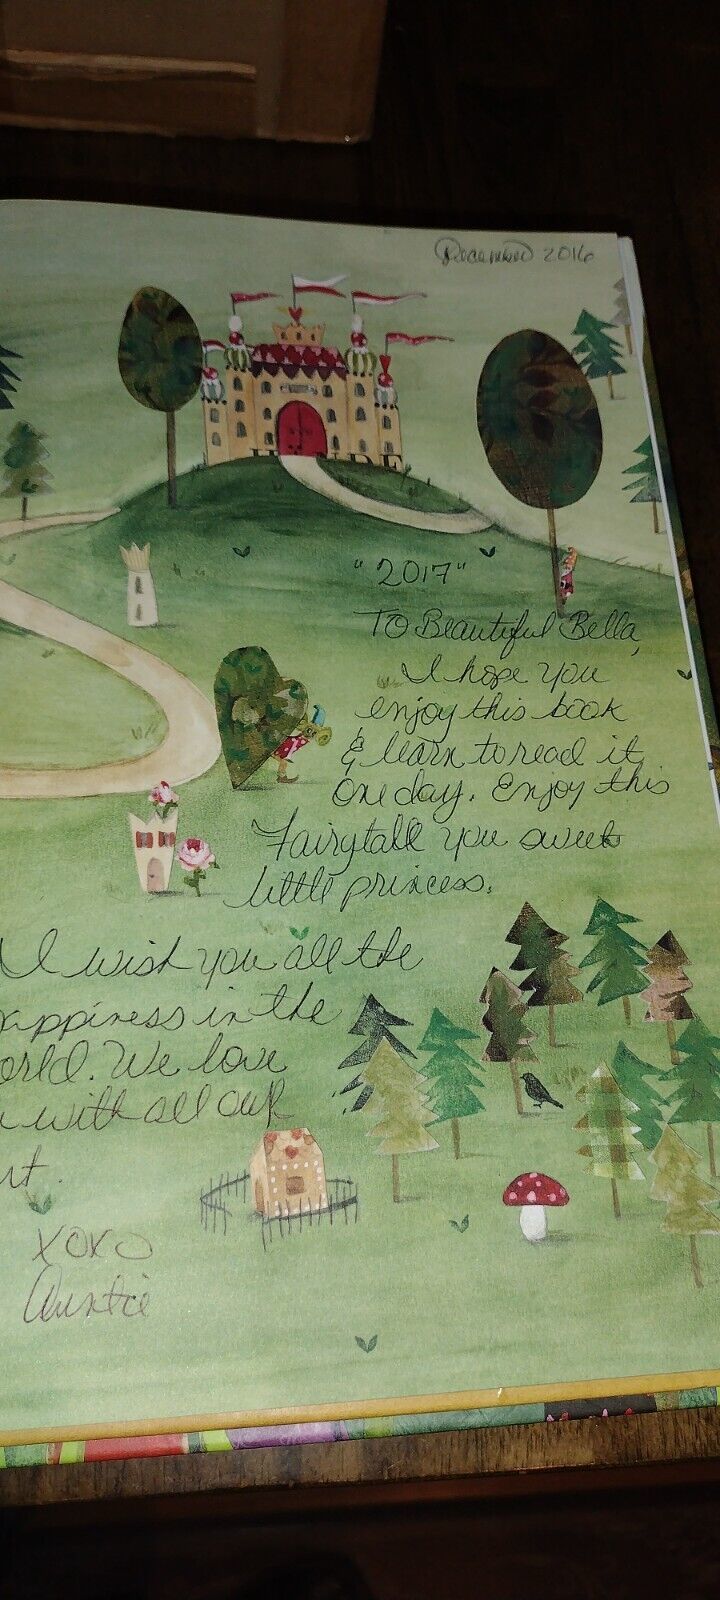 December 2016
"2017"
To Beautiful Bella,
I hope you
enjoy this book
& learn to read it
one day. Enjoy this
Fairytale you sweet
little princess.
I wish you all the
appiness in the
orld. We love
u with all our
rt.
XOXO
Auntie